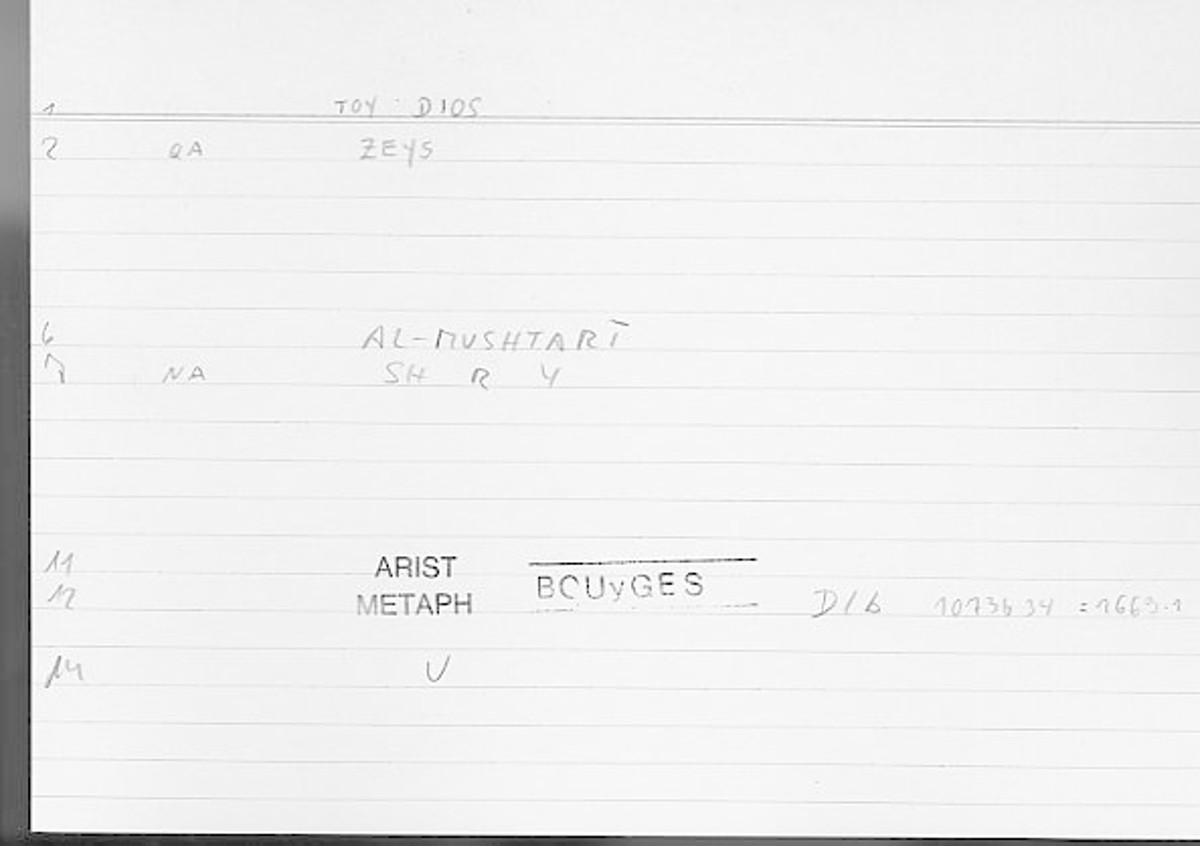 1 TOY DIOS
2 QA ZEYS
6 AL-MUSHTARĪ
7 NA SH R Y
11 ARIST
12 METAPH BOUyGES D/b 1073b34 =1663.1
14 V